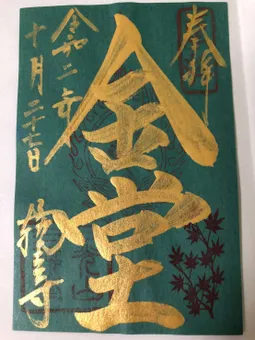 奉拝
金堂
令和二年
十月二十七日
寺